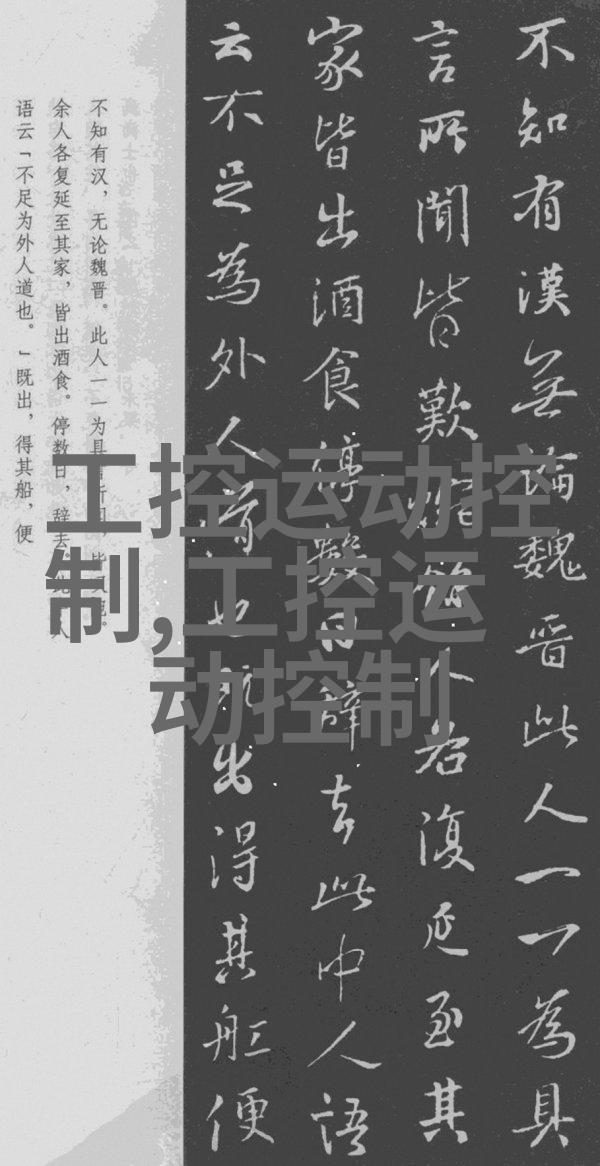 不知有漢無論魏晋此人一一為具
言所聞皆歎惋餘人各復延至其
家皆出酒食停數日辭去此中人語
云不足為外人道也既出得其舡便
不知有汉，无论魏晋。此人一一为具言所闻，皆叹惋。
余人各复延至其家，皆出酒食。停数日，辞去。此中人
语云「不足为外人道也。」既出，得其船，便
工控运动控
制,工控运
动控制